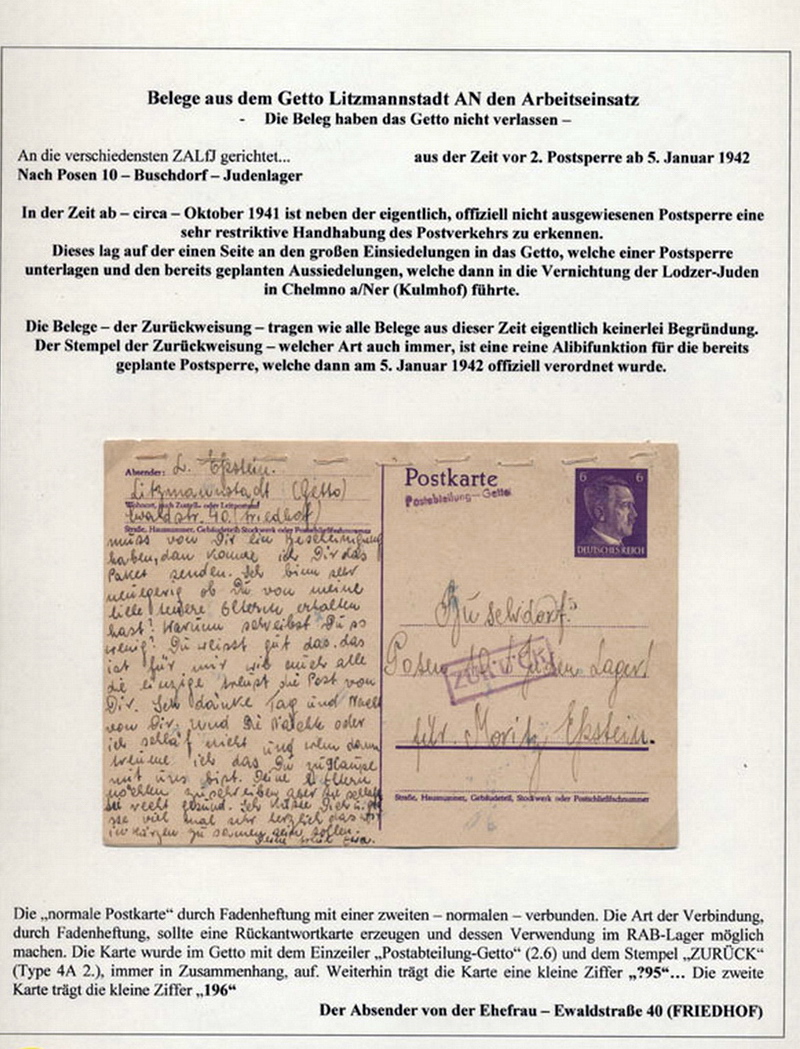 Belege aus dem Getto Litzmannstadt AN den Arbeitseinsatz
- Die Beleg haben das Getto nicht verlassen –
An die verschiedensten ZALfJ gerichtet... aus der Zeit vor 2. Postsperre ab 5. Januar 1942
Nach Posen 10 – Buschdorf – Judenlager
In der Zeit ab – circa – Oktober 1941 ist neben der eigentlich, offiziell nicht ausgewiesenen Postsperre eine
sehr restriktive Handhabung des Postverkehrs zu erkennen.
Dieses lag auf der einen Seite an den großen Einsiedelungen in das Getto, welche einer Postsperre
unterlagen und den bereits geplanten Aussiedelungen, welche dann in die Vernichtung der Lodzer-Juden
in Chelmno a/Ner (Kulmhof) führte.
Die Belege – der Zurückweisung – tragen wie alle Belege aus dieser Zeit eigentlich keinerlei Begründung.
Der Stempel der Zurückweisung – welcher Art auch immer, ist eine reine Alibifunktion für die bereits
geplante Postsperre, welche dann am 5. Januar 1942 offiziell verordnet wurde.
Absender: L. Epstein.
Litzmannstadt (Getto)
Wohnort, auch Zustell- oder Leitpostamt
Ewaldstr. 40 (Friedhof)
Straße, Hausnummer, Gebäudeteil, Stockwerk oder Postschließfachnummer
muss von Dir ein Bescheinigung
haben, dan komme ich Dir das
Paket senden. Ich binn sehr
neugierig ob Du von meine
liebe teuere Eltern erhalten
hast? Warum schreibst Du so
wenig? Du weisst gut das. das
ist für mir wie euch alle
die einzige die Post von
Dir. Ich danke Tag und Nacht
von Dir. Und Die Nachte oder
ich schlaf nicht und wenn dann
treume ich das Du zu Hause
mit uns bist. Deine l. Eltern
zuschreiben aber
recht gesund. Ich küsse Dich
viel mal sehr herzlich das wir
in kürzen zu samen sein sollen.
Deine
Postkarte
Postabteilung-Getto
6 6
DEUTSCHES REICH
Buschdorf.
Posen 10. Juden Lager!
ZURÜCK
für. Moritz Epstein.
Straße, Hausnummer, Gebäudeteil, Stockwerk oder Postschließfachnummer
Die „normale Postkarte“ durch Fadenheftung mit einer zweiten – normalen – verbunden. Die Art der Verbindung,
durch Fadenheftung, sollte eine Rückantwortkarte erzeugen und dessen Verwendung im RAB-Lager möglich
machen. Die Karte wurde im Getto mit dem Einzeiler „Postabteilung-Getto“ (2.6) und dem Stempel „ZURÜCK“
(Type 4A 2.), immer in Zusammenhang, auf. Weiterhin trägt die Karte eine kleine Ziffer „?95“... Die zweite
Karte trägt die kleine Ziffer „196“
Der Absender von der Ehefrau – Ewaldstraße 40 (FRIEDHOF)